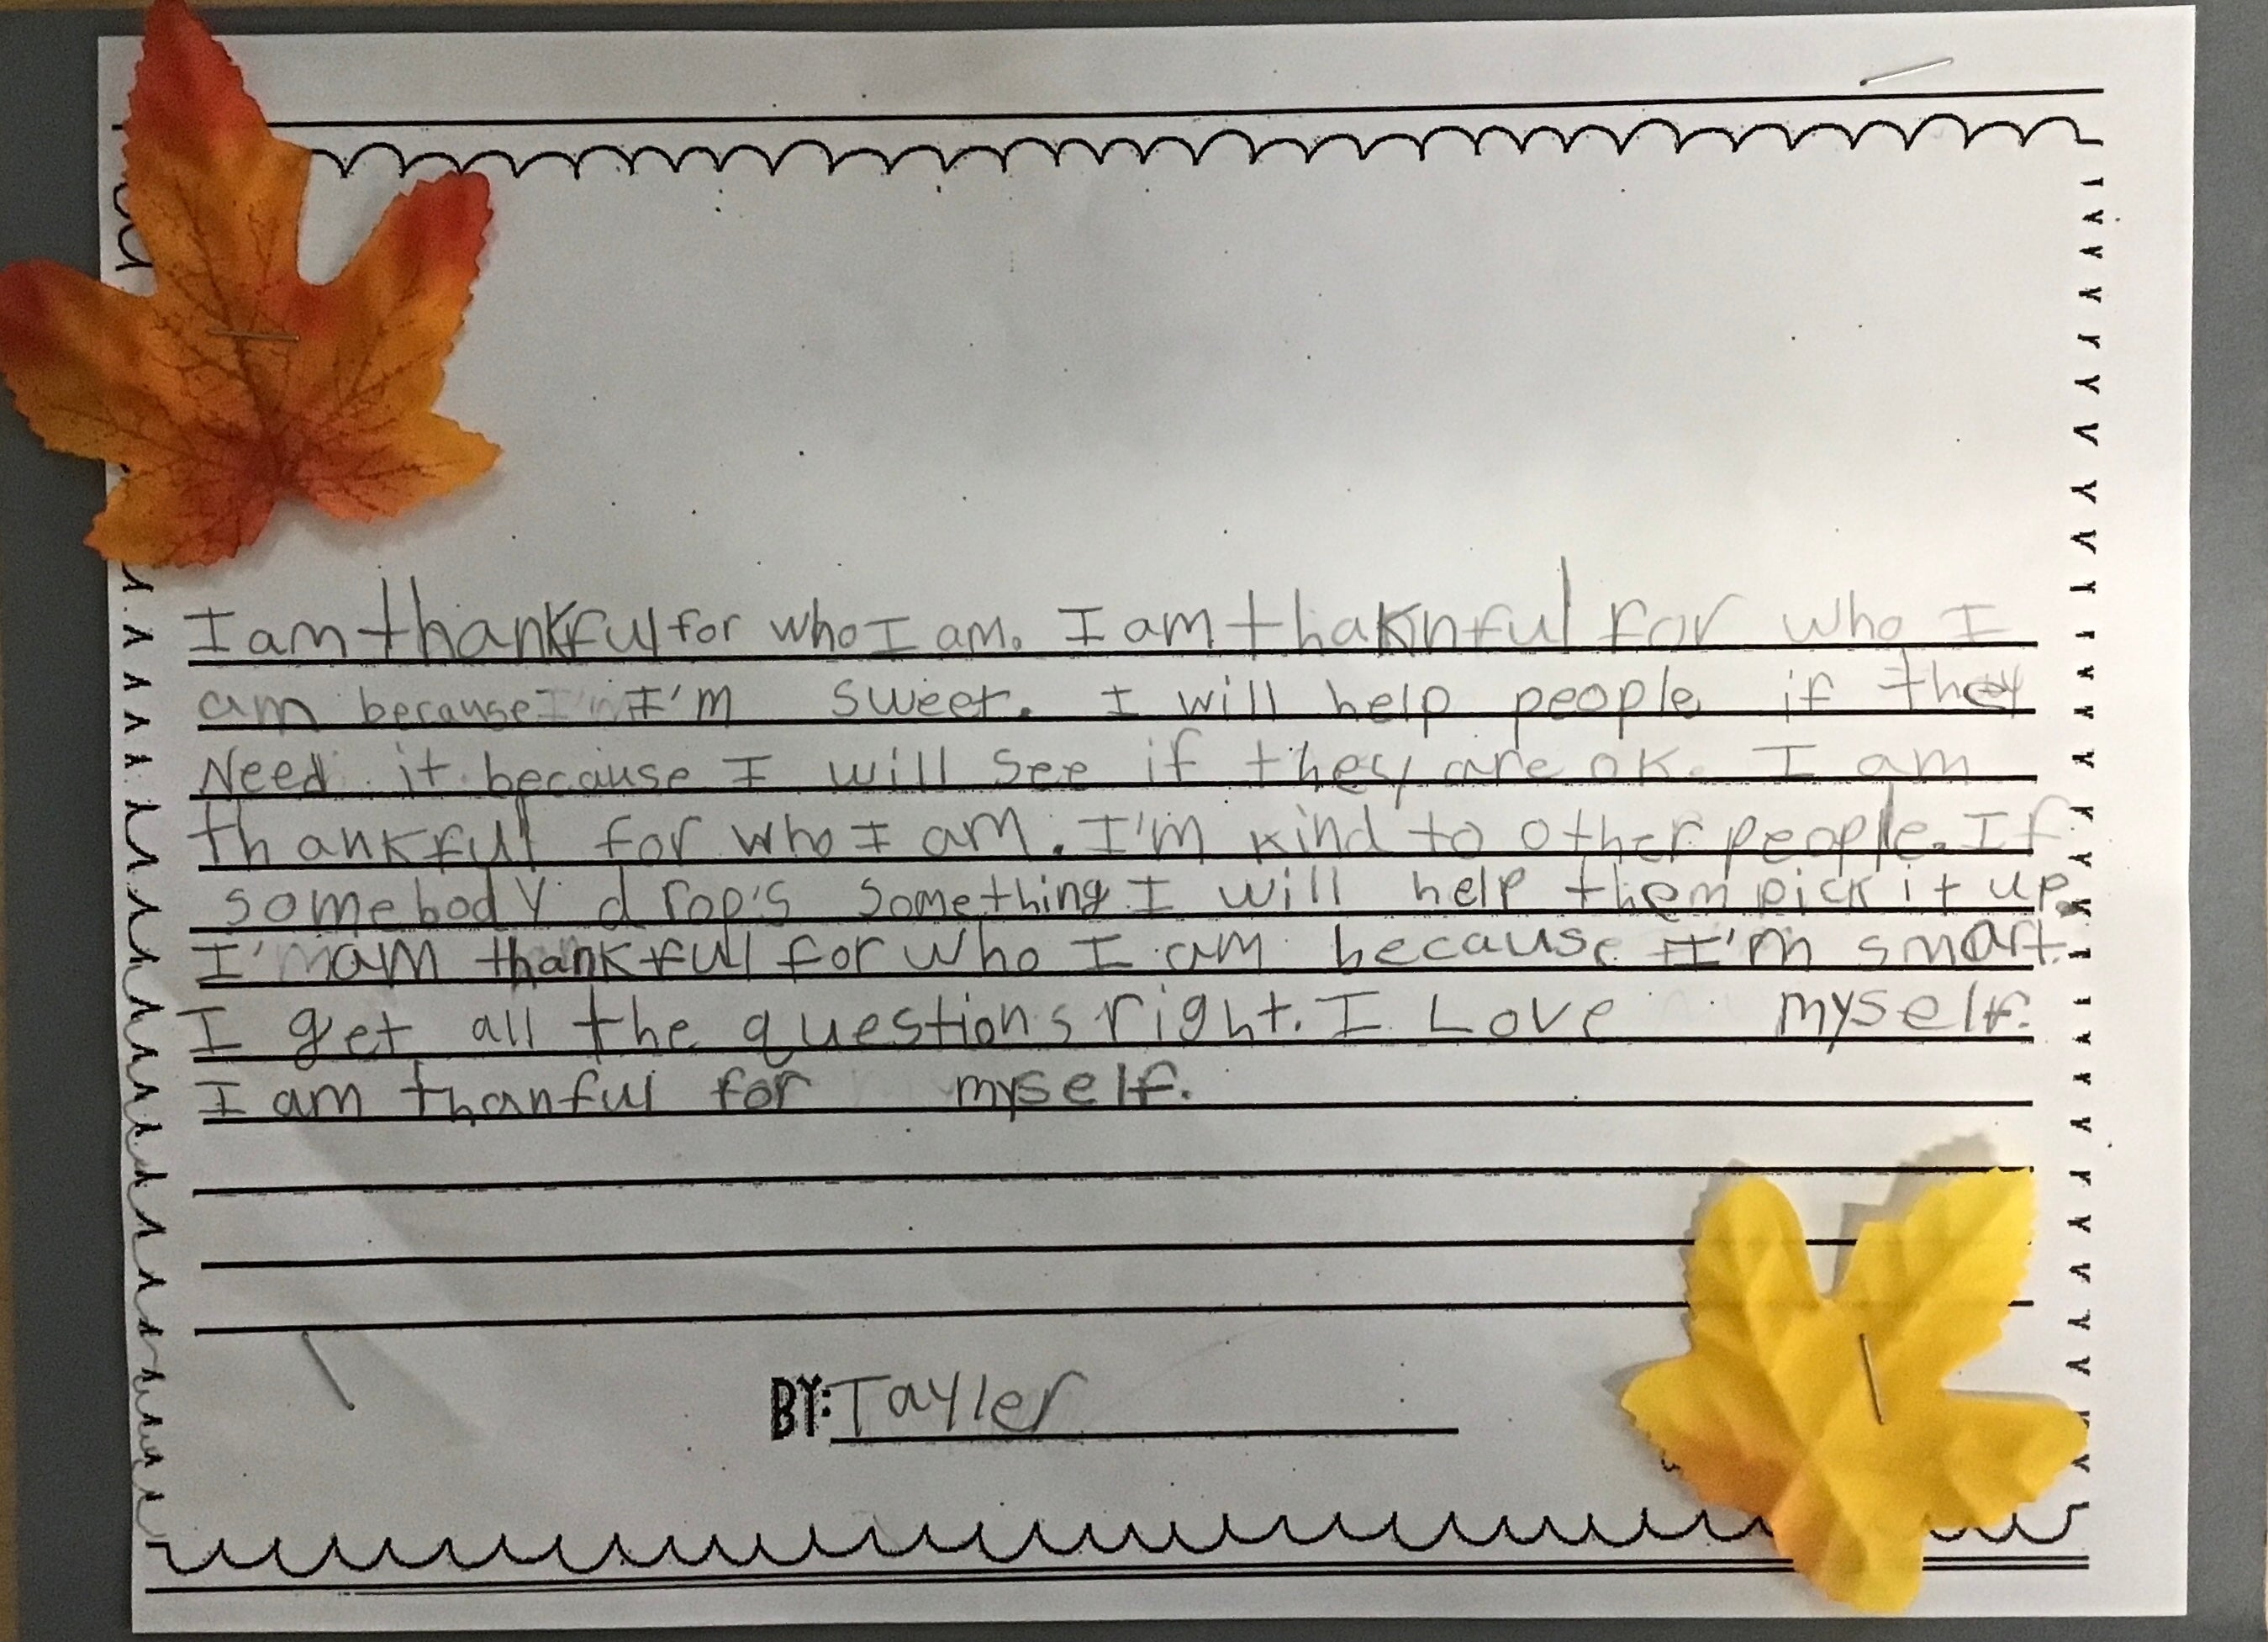 I am thankful for who I am. I am thaknful for who I
am because I'm sweet. I will help people if they
Need it because I will see if they are ok. I am
thankful for who I am. I'm kind to other people. If
somebody drop's something I will help them pick it up.
I am thankful for who I am because I'm smart.
I get all the questions right. I Love myself.
I am thanful for myself.
BY: Tayler